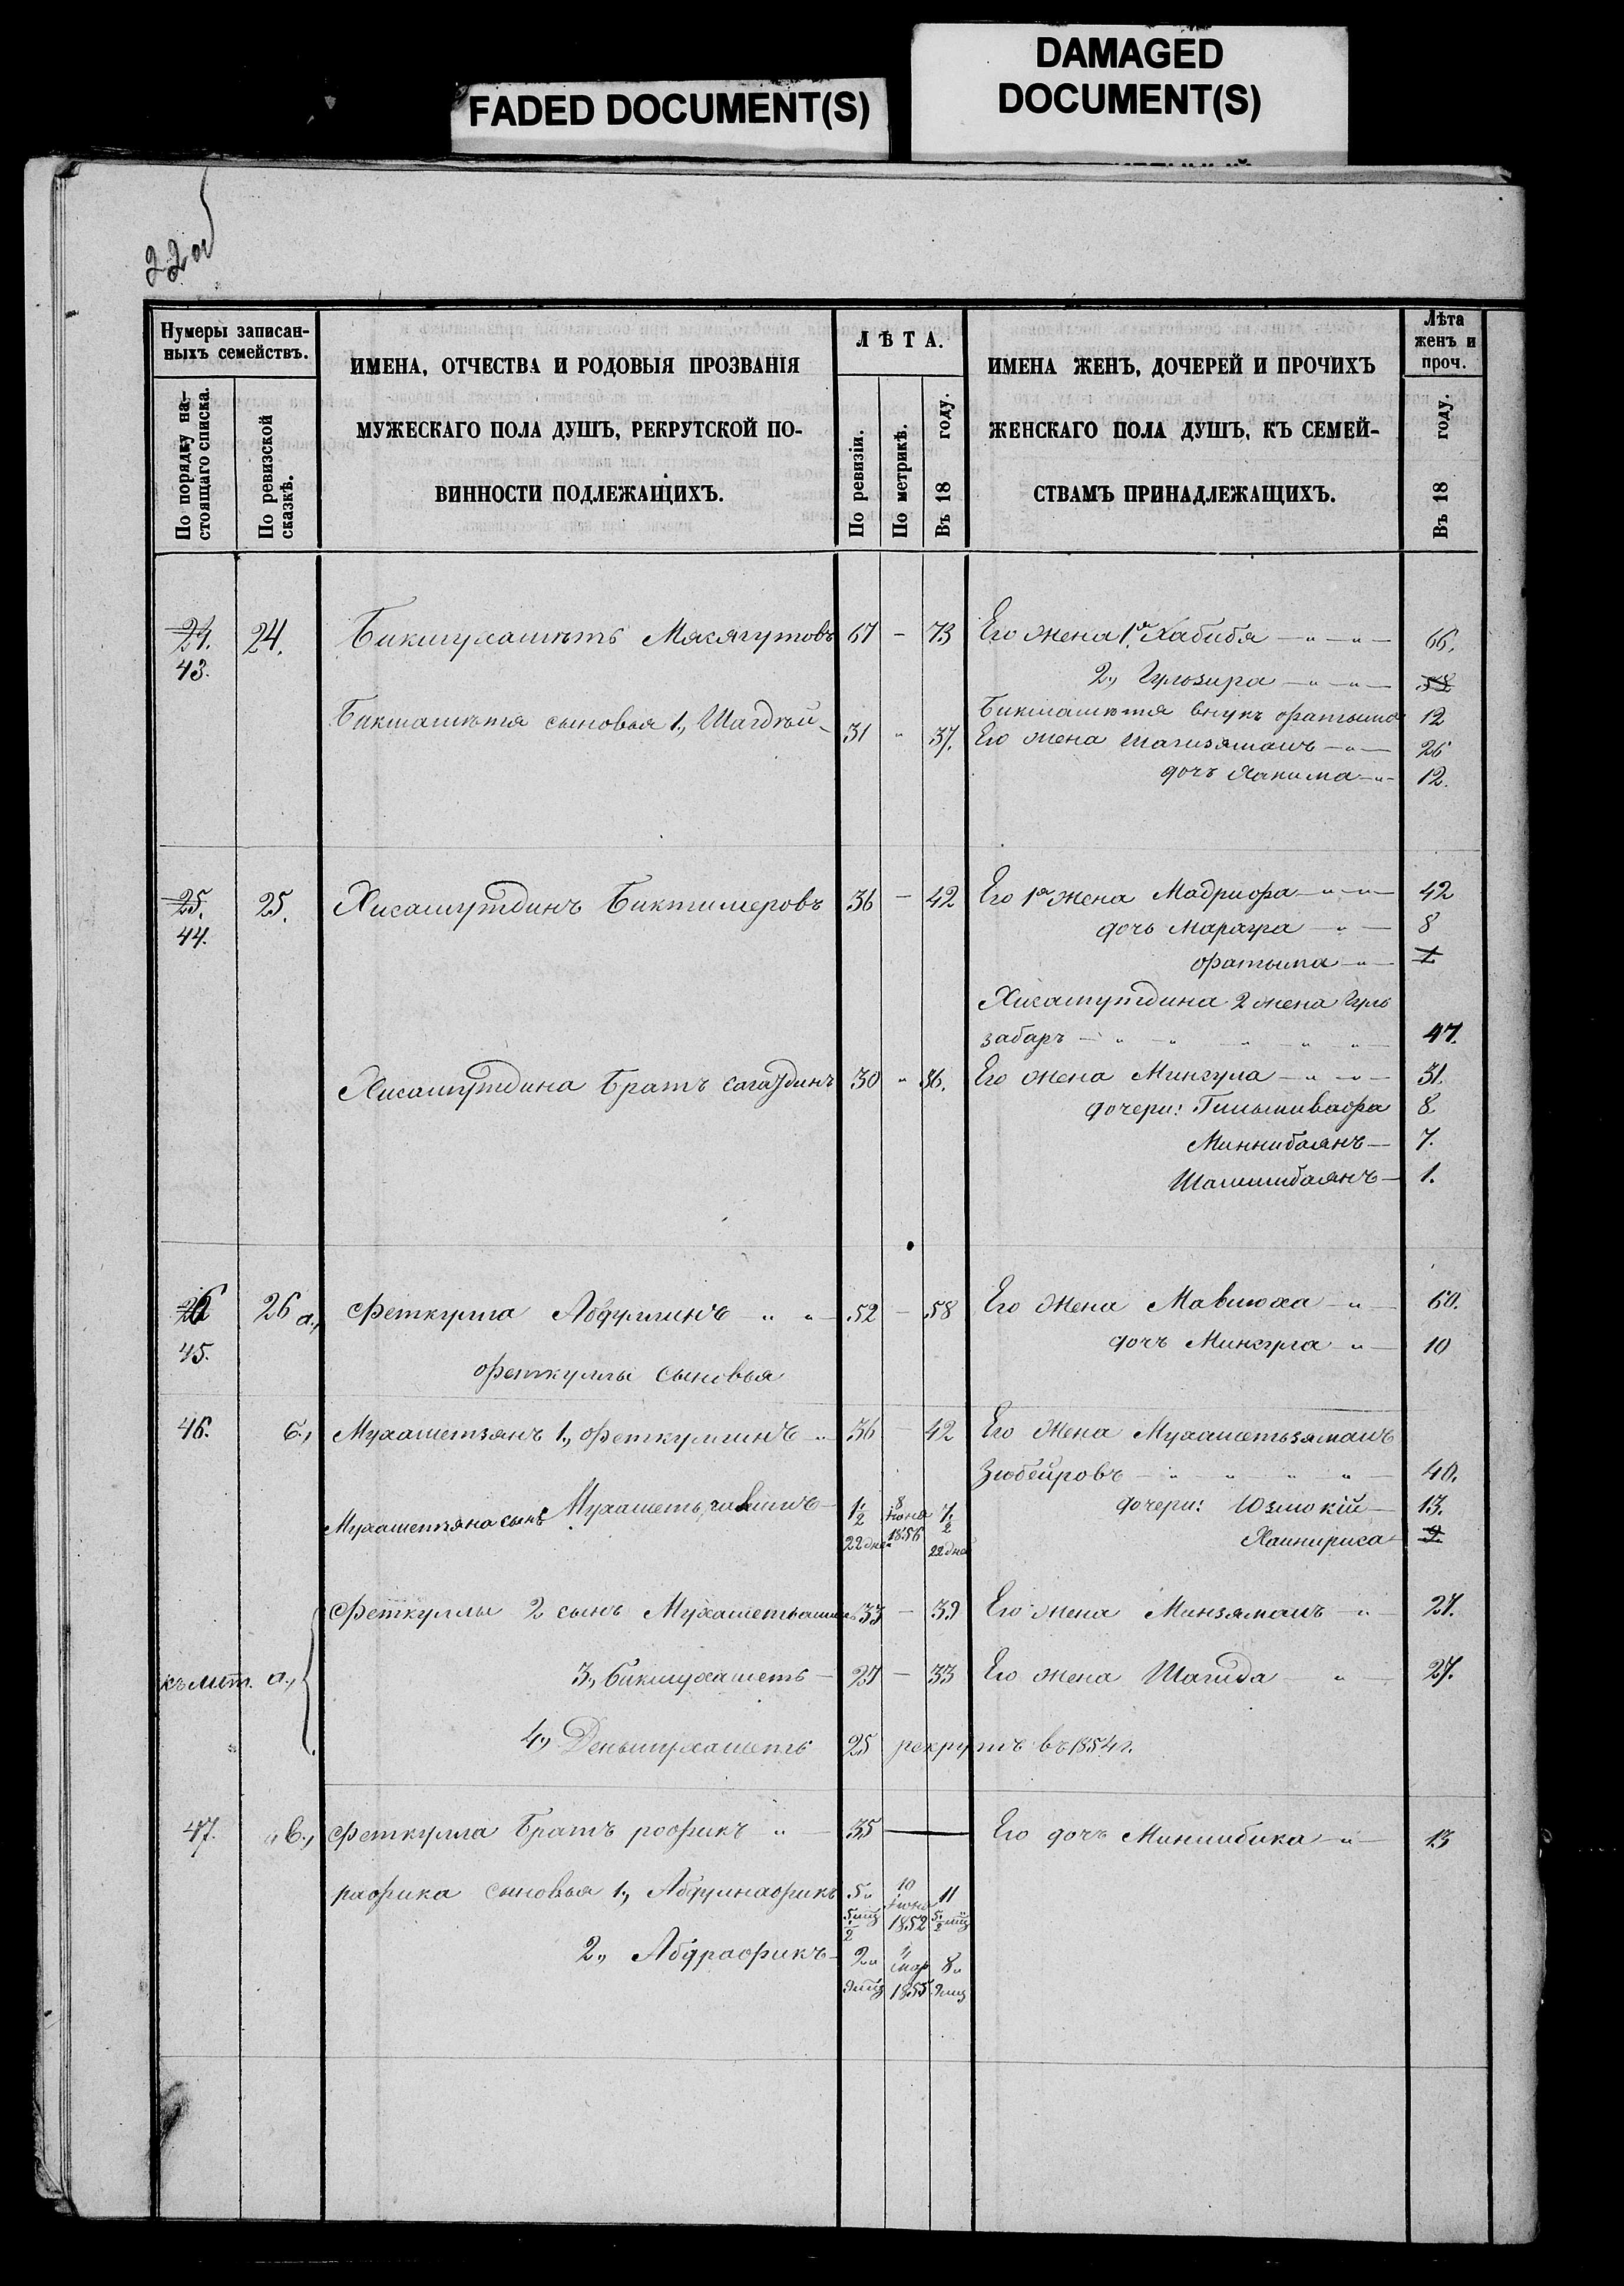 FADED DOCUMENT(S)
DAMAGED
DOCUMENT(S)
22
Нумеры записан-
ныхъ семействъ.
По порядку на-
стоящаго списка.
По ревизской
сказкѣ.
ИМЕНА, ОТЧЕСТВА И РОДОВЫЯ ПРОЗВАНІЯ
МУЖЕСКАГО ПОЛА ДУШЪ, РЕКРУТСКОЙ ПО-
ВИННОСТИ ПОДЛЕЖАЩИХЪ.
ЛѢТА.
По ревизіи.
По метрикѣ.
Въ 18 году.
ИМЕНА ЖЕНЪ, ДОЧЕРЕЙ И ПРОЧИХЪ
ЖЕНСКАГО ПОЛА ДУШЪ, КЪ СЕМЕЙ-
СТВАМЪ ПРИНАДЛЕЖАЩИХЪ.
Лѣта
женъ и
проч.
Въ 18 году.
24. 24. Бикмухаметь Мясягутовъ 67 – 73 Его жена 1я Хабибя — " — " — 66.
43. 2., Гульзира — " — " — 58
Бикмаметя сыновья 1., Шагдѣй 31 " 37. Бикмаметя внукъ фатыма 12
Его жена Шагизяманъ — " — 26
дочь Ханима — " — 12.
25. 25. Хисамутдинъ Биктимеровъ 36 – 42 Его 1я жена Мадрифа — " — " — 42
44. дочь Марагра — " — 8
фатыма — " — 1
Хисамутдина 2 жена Гуль
забаръ — " — " — " — " — " — 47.
Хисамутдина Братъ Сагатдинъ 30 " 36. Его жена Мингула — " — " — 31.
дочери: Гильмивафа 8.
Миннибаянъ — 7.
Шамшибаянъ — 1.
26 26 а., Феткулла Абдуллинъ " " 52 – 58 Его Жена Мавлюха — " — 60.
45. дочь Мингула " — 10
феткуллы сыновья
46. б., Мухаметзянъ 1., феткуллинъ — " 36 – 42 Его Жена Мухаметьзяманъ
Зюбейровъ — " — " — " — " — 40.
Мухаметзяна сынъ Мухаметь 1 1/2 22 дня 8 июня 1856 7 1/2 22 дня дочери: 13.
9.
Феткуллы 2 сынъ 33 – 39 Его жена Минзяманъ " — 27.
къ лит. а., 3., Бикмухаметь — 27 – 33 Его жена Шагида " — 27.
4., Деньмухаметь 25 рекрутъ въ 1854 г.
47. " в., Феткулла Братъ рафикъ " — 35 — Его дочь Миннибика — " — 13
рафика сыновья 1., 5 " 5 1/2 мц 10 июня 1852 11 5 1/2 мц
2., Абдрафикъ — 2 " 9 мц 4 мар 1855 8 " 9 мц